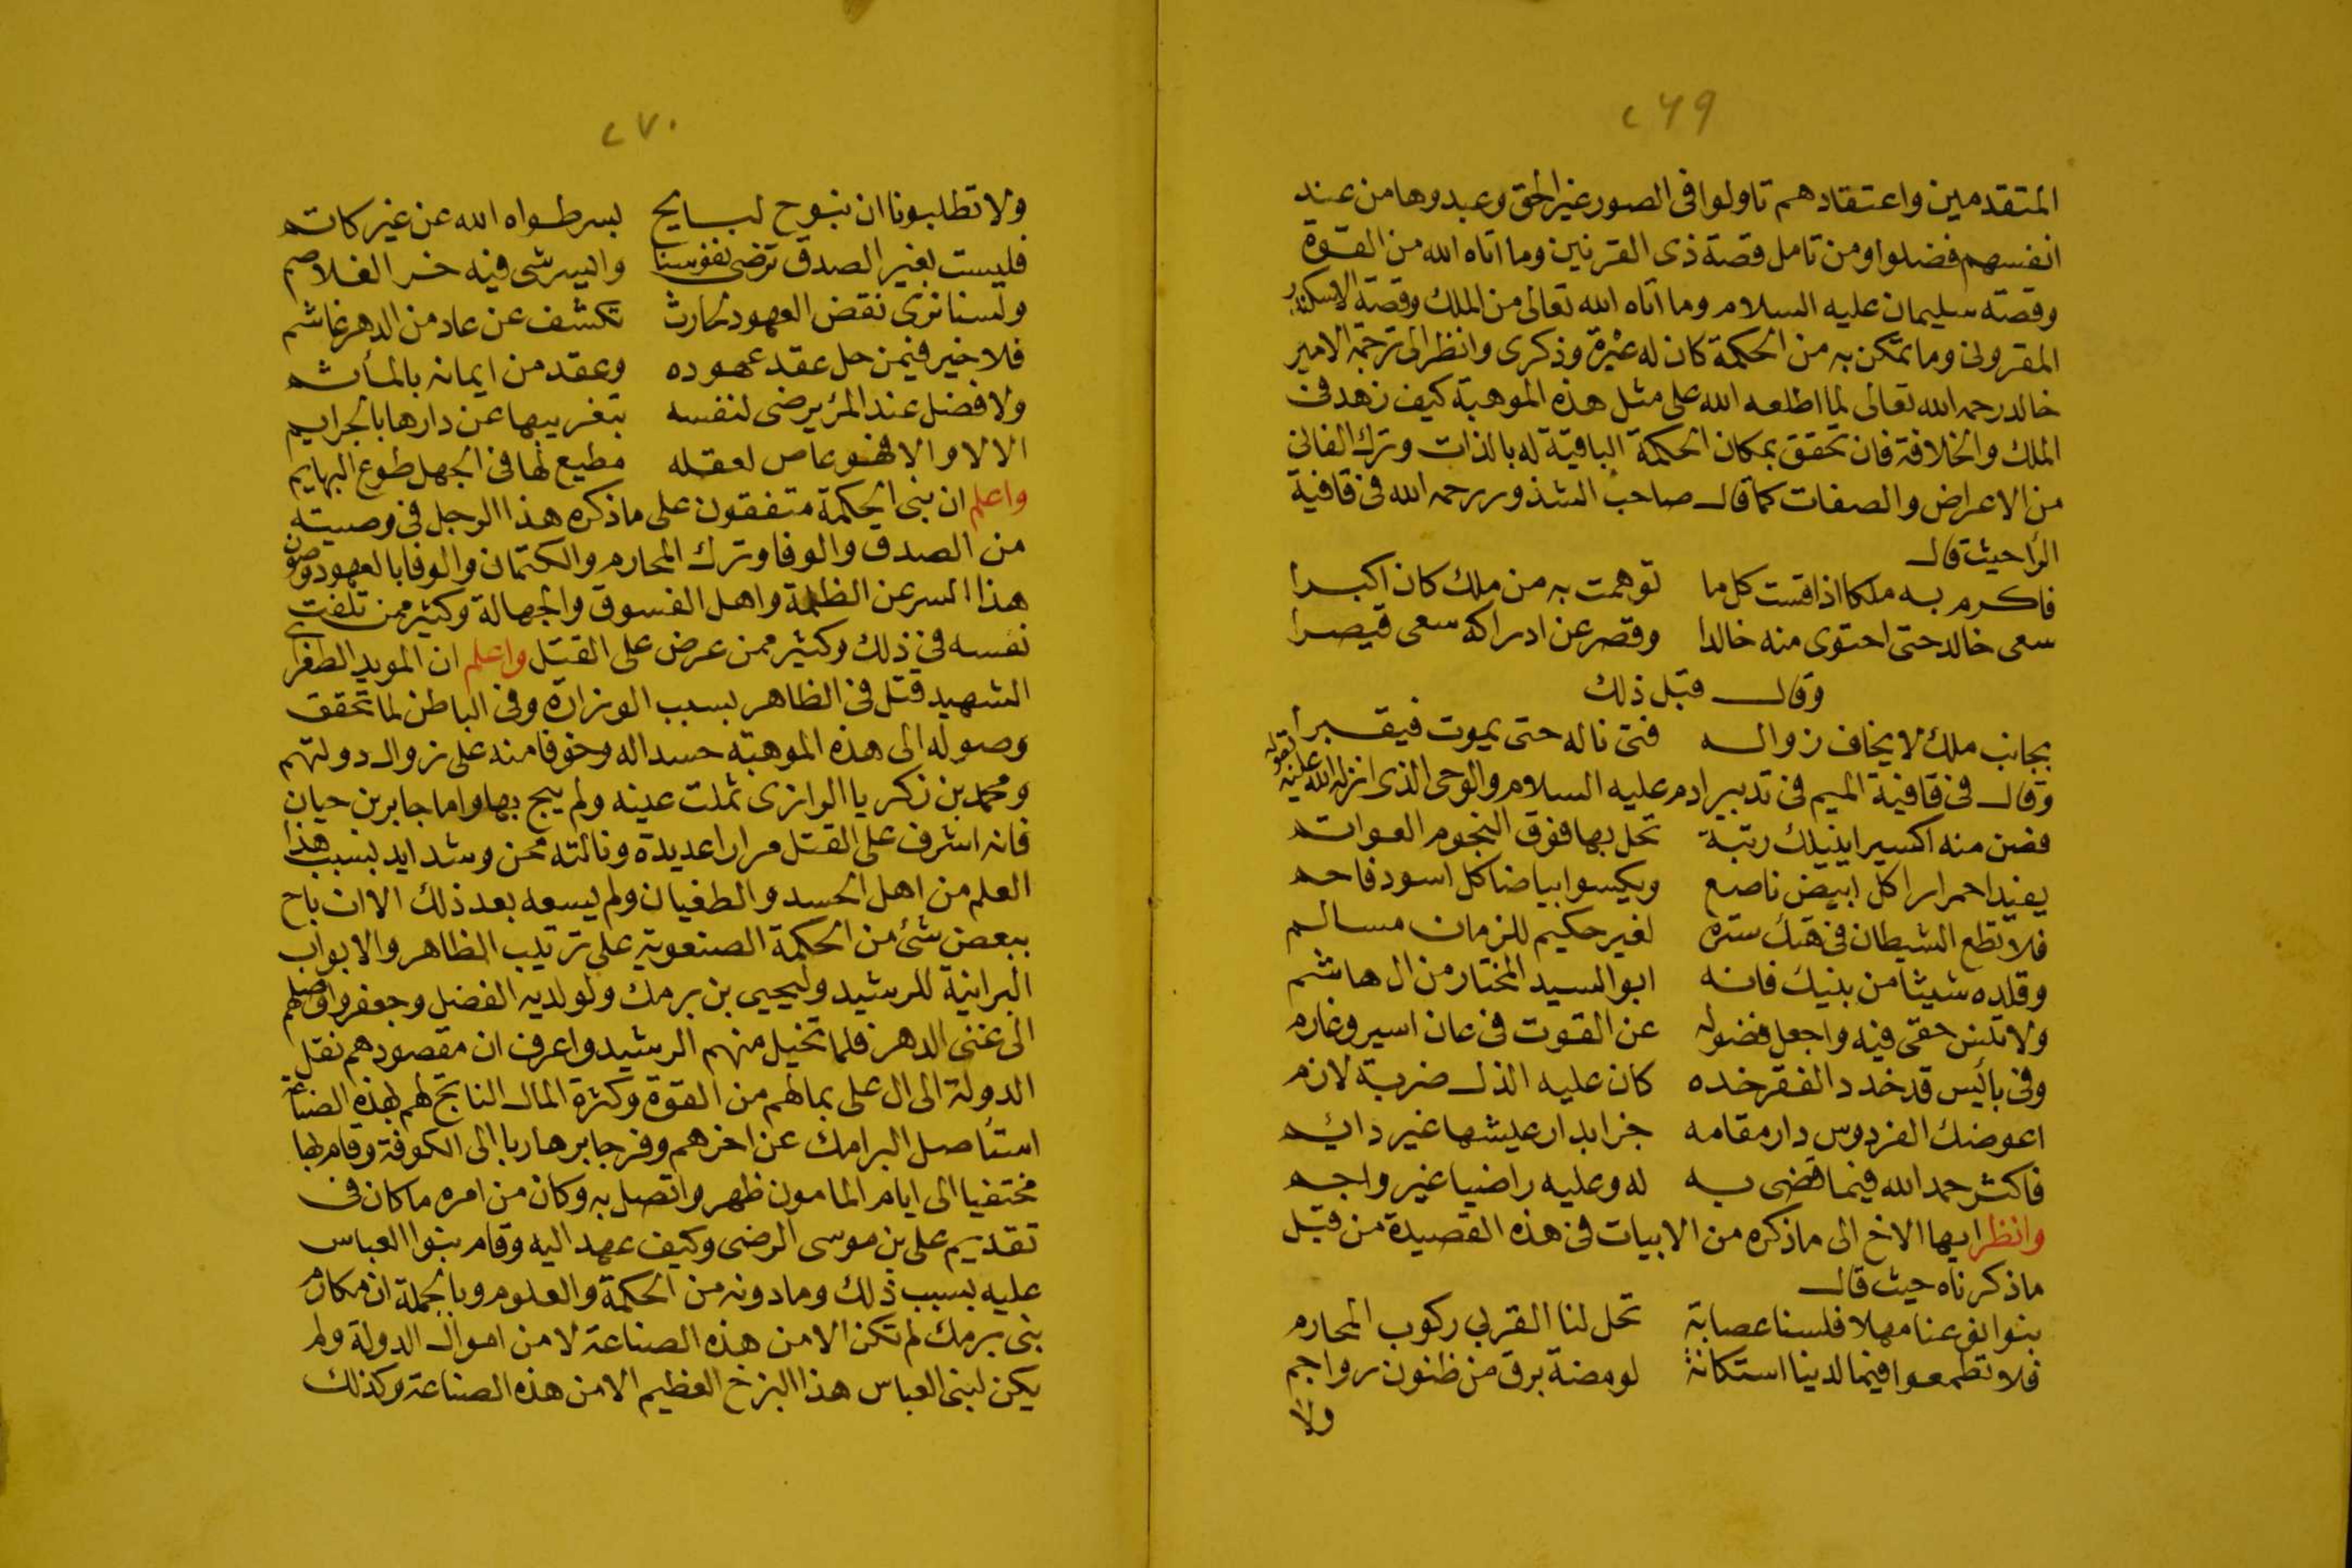 ٢٦٩
المتقدمين واعتقادهم تاولوا فى الصور غير الحق وعبدوها من عند
انفسهم فضلوا ومن تامل قصة ذى القرنين وما اتاه الله من القوة
وقصته سليمان عليه السلام وما اتاه الله تعالى من الملك وقصة الاسكندر
المقرونى وما تمكن به من الحكمة كان له عبرة وذكرى وانظر الى ترجمة الامير
خالد رحمه الله تعالى لما اطلعه الله على مثل هذه الموهبة كيف زهد فى
الملك والخلافة فان تحقق بمكان الحكمة الباقية له بالذات وترك الفانى
من الاعراض والصفات كما قال صاحب الشذور رحمه الله فى قافية
الرا حيث قال
فاكرم به ملكا اذا قست كل ما توهمت به من ملك كان اكبرا
سعى خالد حتى احتوى منه خالدا وقصر عن ادراكه سعى قيصرا
وقال قبل ذلك
بجانب ملك لا يخاف زواله فتى ناله حتى يموت فيقبرا
وقال فى قافية الميم فى تدبير ادم عليه السلام والوحى الذى انزله الله عليه بقوله
فضن منه اكسيرا ينيلك رتبة تحل بها فوق النجوم العواتم
يفيد احمرارا كل ابيض ناصع ويكسوا بياضا كل اسود فاحم
فلا تطع الشيطان فى هتك ستره لغير حكيم للزمان مسالم
وقلده شيثا من بنيك فانه ابو السيد المختار من ال هاشم
ولا تنس حقى فيه واجعل فضوله عن القوت فى عان اسير وغارم
وفى بائيس قد خدد الفقر خده كان عليه الذل ضربة لازم
اعوضك الفردوس دار مقامه جزا بدار عيشها غير دائم
فاكثر حمد الله فيما قضى به له وعليه راضيا غير واجم
وانظر ايها الاخ الى ما ذكره من الابيات فى هذه القصيدة من قبل
ما ذكرناه حيث قال
بنوا بق عنا مهلا فلسنا عصابة تحل لنا القربي ركوب المحارم
فلا تطمعوا فيما لدينا استكانة لومضة برق من ظنون رواجم
ولا
٢٧٠
ولا تطلبونا ان نبوح لبايح بسر طواه الله عن غير كاتم
فليست بغير الصدق ترضى نفوسنا واليسر شى فيه خر الغلاصم
ولسنا نرى نقض العهود لحارث تكشف عن عاد من الدهر غاشم
فلا خير فيمن حل عقد عهوده وعقد من ايمانه بالمأثم
ولا فضل عند المرٔ يرضى لنفسه بتغريبها عن دارها بالجرايم
الا لا والا فهو عاص لعقله مطيع لها فى الجهل طوع البهايم
واعلم ان بنى الحكمة متفقون على ما ذكره هذا الرجل فى وصيته
من الصدق والوفا وترك المحارم والكتمان والوفا بالعهود وصون
هذا السر عن الظلمة واهل الفسوق والجهالة وكثير ممن تلفت
نفسه فى ذلك وكثير ممن عرض على القتل واعلم ان المويد الطغراى
الشهيد قتل فى الظاهر بسبب الوزارة وفى الباطن لما تحقق
وصوله الى هذه الموهبة حسدا له وخوفا منه على زوال دولتهم
ومحمد بن زكريا الرازى ثملت عينه ولم يبح بها واما جابر بن حيان
فانه اشرف على القتل مرارا عديدة ونالته محن وشدايد بسبب هذا
العلم من اهل الحسد والطغيان ولم يسعه بعد ذلك الا ان باح
ببعض شئ من الحكمة الصنعوية على ترتيب الظاهر والابواب
البرانية للرشيد وليحيى بن برمك ولولديه الفضل وجعفر واوصلهم
الى غنى الدهر فلما تخيل منهم الرشيد واعرف ان مقصودهم نقل
الدولة الى ال على بما لهم من القوة وكثرة المال الناتج لهم بهذه الصناعة
استأصل البرامك عن اخرهم وفر جابر هاربا الى الكوفة وقام بها
مختفيا الى ايام المامون ظهر واتصل به وكان من امره ما كان فى
تقديم على بن موسى الرضى وكيف عهد اليه وقام بنوا العباس
عليه بسبب ذلك وما دونه من الحكمة والعلوم وبالجملة ان مكارم
بنى برمك لم تكن الا من هذه الصناعة لا من اموال الدولة ولم
يكن لبنى العباس هذا البزخ العظيم الا من هذه الصناعة وكذلك